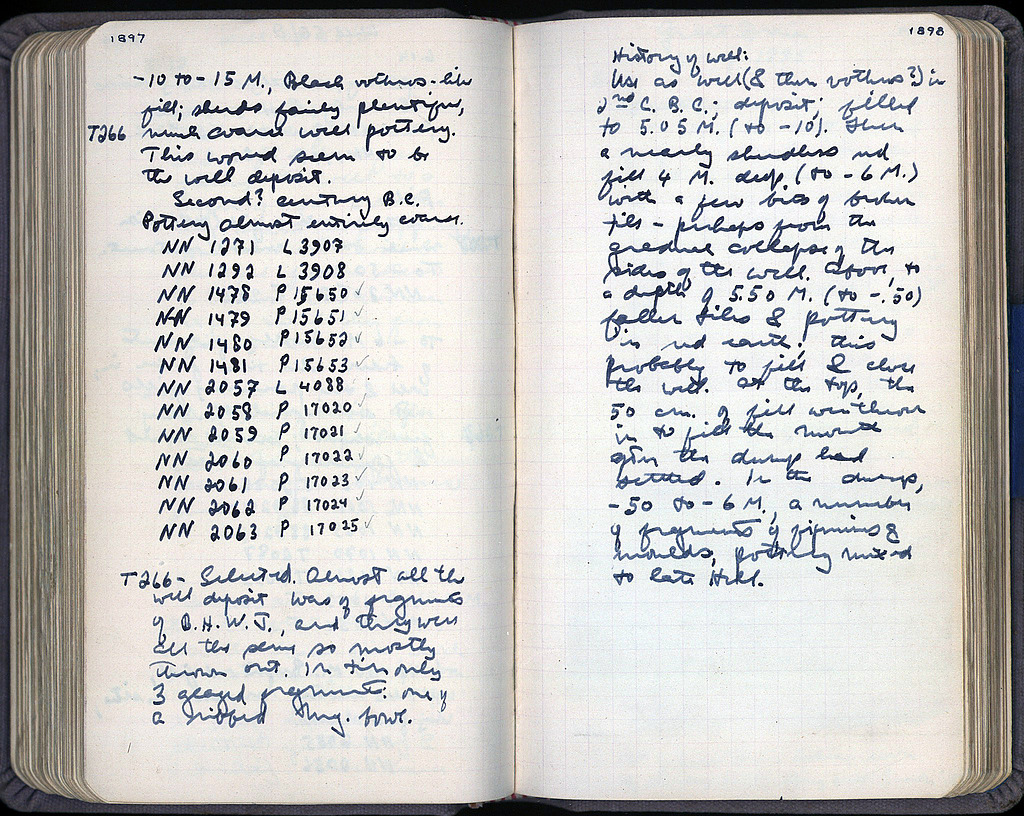 1897
-10 to -15 M., Black vothros-like
fill; sherds fairly plentiful,
T266 much coarse well pottery.
This would seem to be
the well deposit.
Second? century B.C.
Pottery almost entirely coarse.
NN 1271 L 3907
NN 1292 L 3908
NN 1478 P 15650 ✓
NN 1479 P 15651 ✓
NN 1480 P 15652 ✓
NN 1481 P 15653 ✓
NN 2057 L 4088
NN 2058 P 17020 ✓
NN 2059 P 17021 ✓
NN 2060 P 17022 ✓
NN 2061 P 17023 ✓
NN 2062 P 17024 ✓
NN 2063 P 17025 ✓
T266 - Selected. Almost all the
well deposit was of fragments
of B.H.W.J., and they were
all the same so mostly
thrown out. In tin only
3 glazed fragments: one of
a ribbed Meg. bowl.
1898
History of well:
Use as well (& then vothros?) in
2nd C. B.C.; deposit; filled
to 5.05 M. (to -10). Then
a nearly sherdless red
fill 4 M. deep (to -6 M.)
with a few bits of broken
tiles - perhaps from the
gradual collapse of the
sides of the well. Above, to
a depth of 5.50 M. (to -.50)
fallen tiles & pottery
in red earth; this
probably to fill & close
the well. At the top, the
50 cm. of fill was thrown
in to fill the mouth
after the dump had
settled. In the dump,
-50 to -6 M., a number
of fragments of figurines &
moulds, pottery mixed
to late Hell.